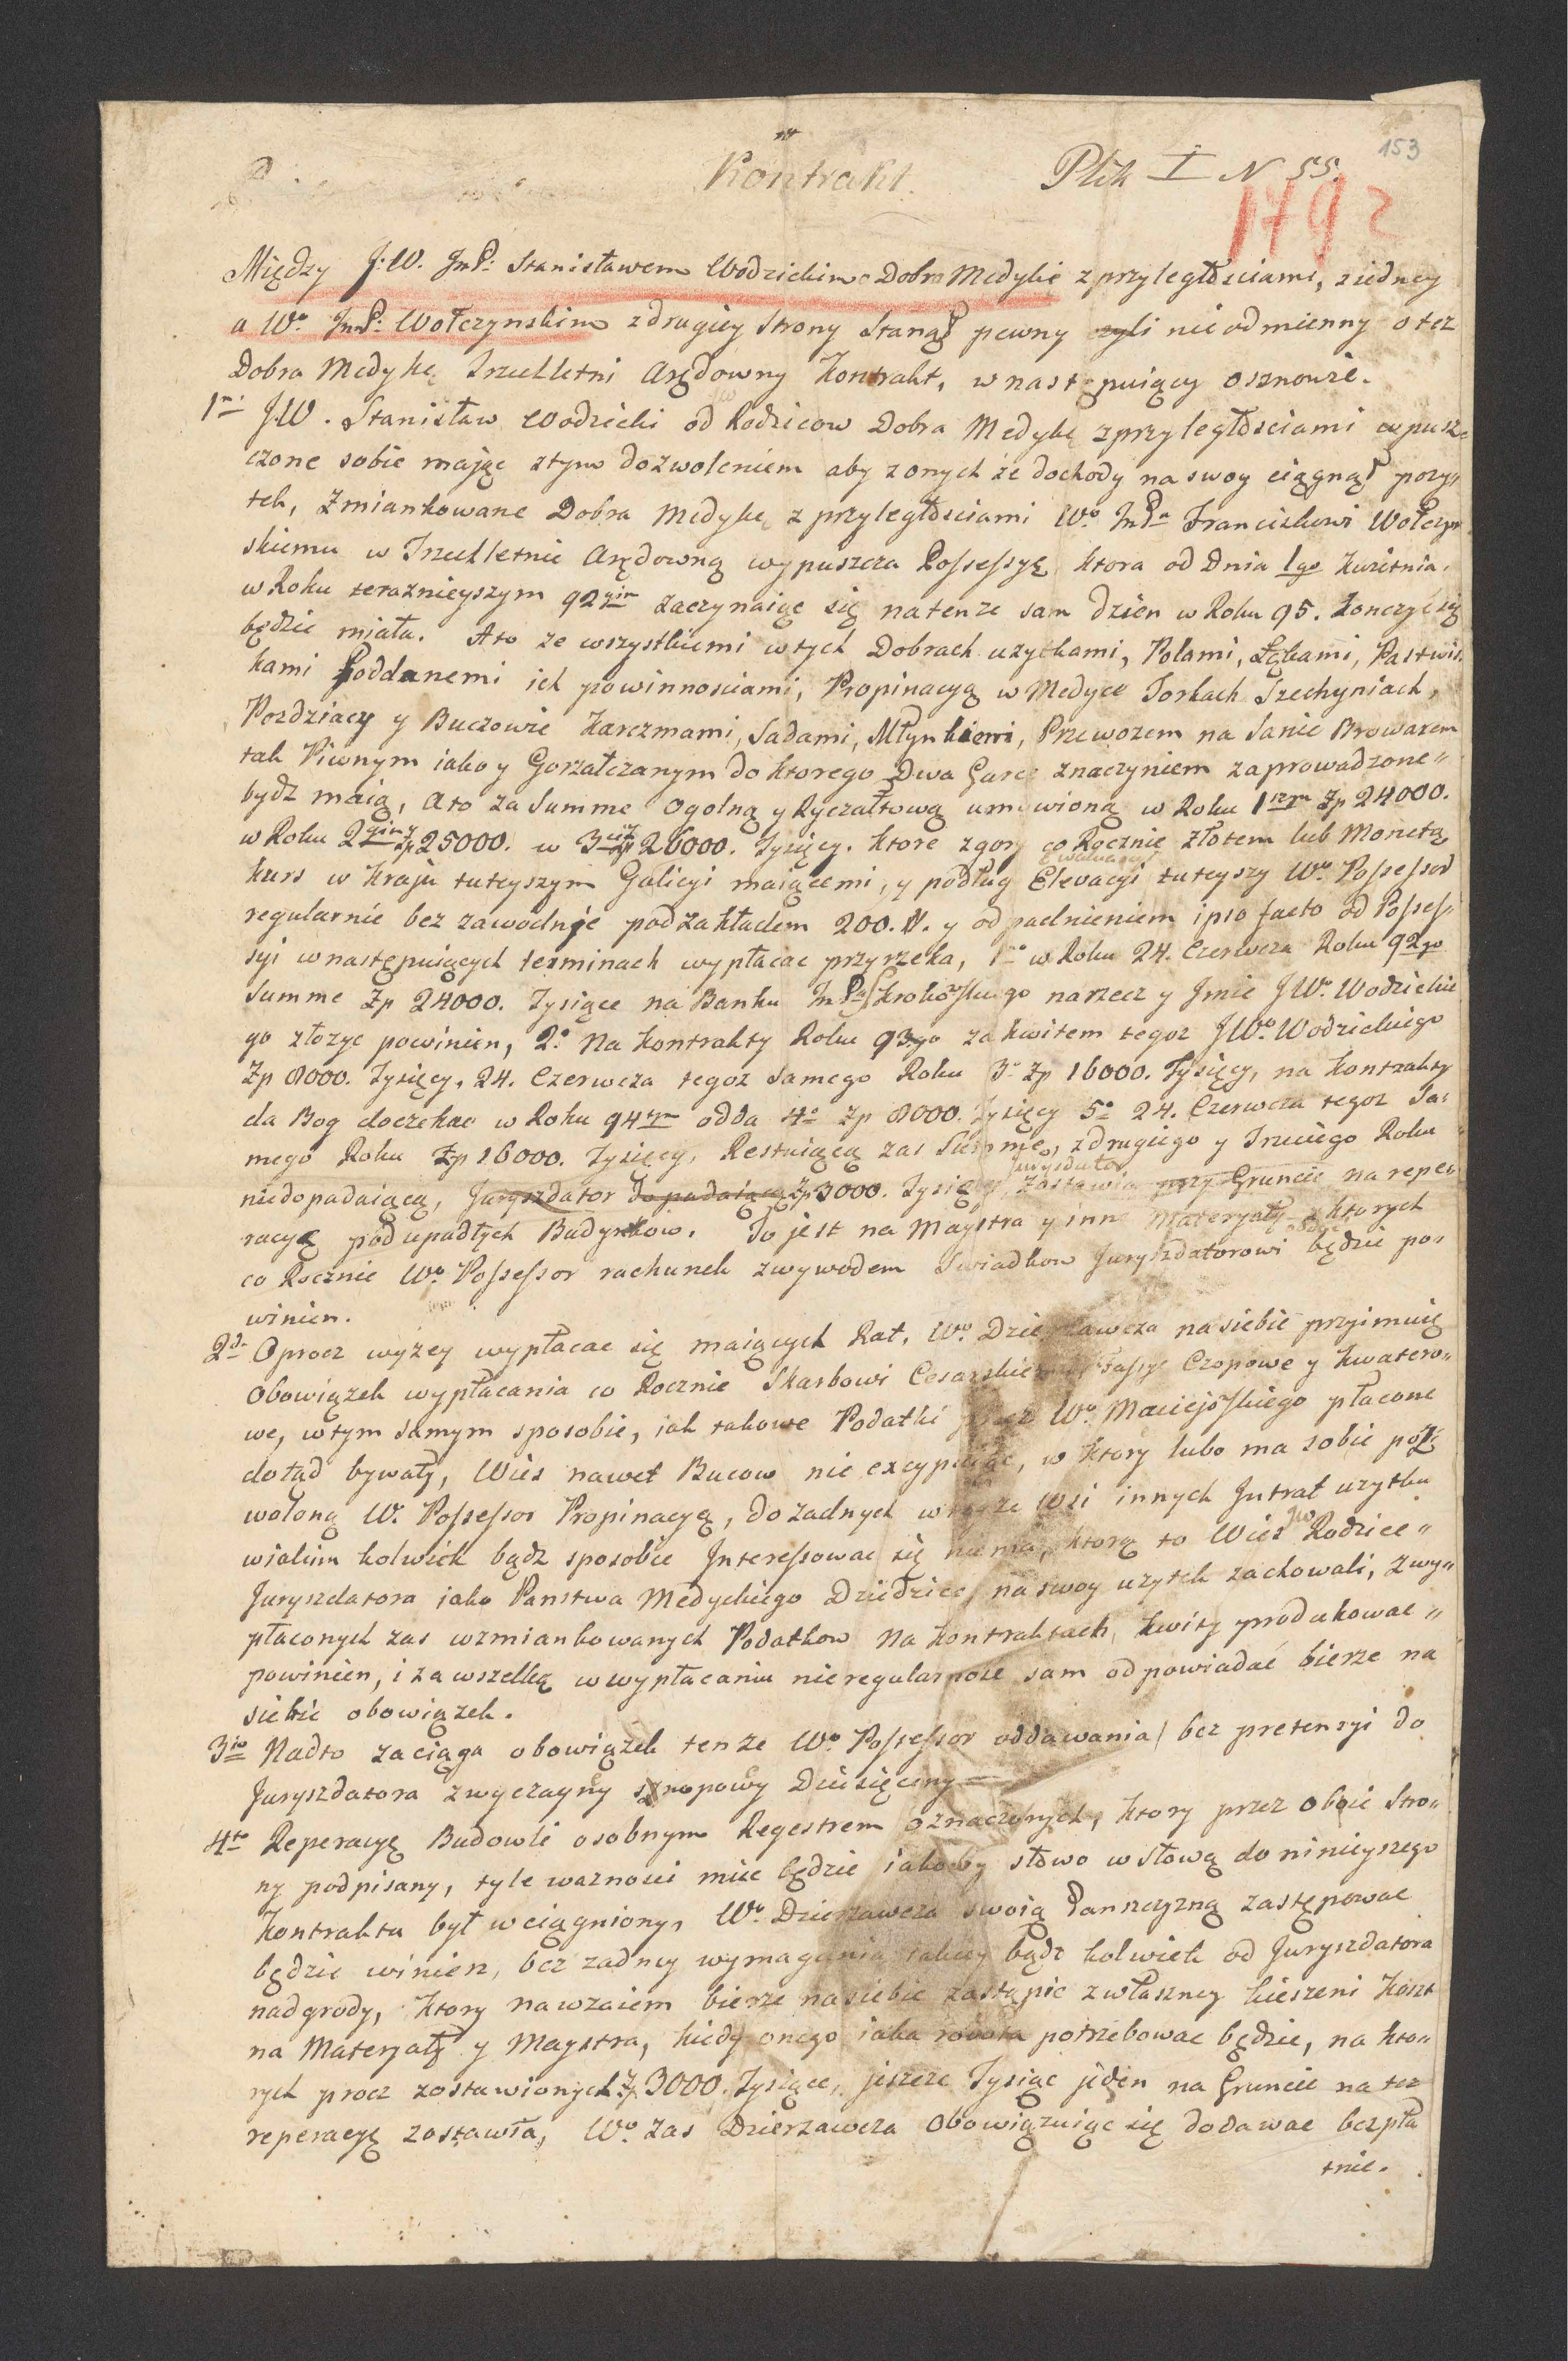 153
Kontrakt.
Plik I N 55.
1792
Między J:W. JmP: Stanisławem Wodzickim Dobra Medykie z przyległościami, z iedney
a Wo. JmP: Wołczynskim z drugiey Strony Stanął pewny nie odmienny o tez
Dobra Medykę Trzechletni Arędowny Kontrakt, w nastepuiący osznowie.
1mo JW. Stanisław Wodzicki od Rodzicow Dobra Medykę z przyległosciami wypusz
czone sobie mając z tym dozwoleniem aby z onych że dochody na swoy ciągnął pozy„
tek, Zmiankowane Dobra Medykę z przyległosciami Wo. JmPa Franciszkowi Wołczyn
skiemu w Trzechletnie Arędowną wypuszcza Possessyę ktora od Dnia 1go Kwietnia,
w Roku teraznieyszym 92gim zaczynaiąc się na tenze sam dzien w Roku 95. konczyć się
będzie miała. Ato ze wszystkiemi w tych Dobrach uzytkami, Polami, Łąkami, Pastwis
kami Poddanemi ich powinnosciami, Propinacyą w Medyce Torkach Szechyniach,
Pozdziaczy y Buczowie Karczmami, Sadami, Młynkiemi, Przewozem na Sanie Browarem
tak Piwnym iako y Gorzałczanym do ktorego Dwa Garce znaczyniem zaprowadzone„
bydz maią, Ato za Summe Ogolną y Ryczałtową umowioną w Roku 1szym Zp 24000.
w Roku 2gim Zp 25000. w 3cim Zp 26000. Tysięcy. ktore z gory co Rocznie złotem lub Monetą
kurs w Kraju tuteyszym Galicyi maiącemi, y podług Elevacyi tuteyszy Wo. Possessor
regularnie bez zawodnie pod zakładem 200. # y odpadnieniem ipso facto od Posses„
syi w następuiących terminach wypłacac przyrzeka, 1o w Roku 24. Czerwcza Roku 92go
Summe Zp 24000. Tysiące na Banku na rzecz y Jmie JWo. Wodzickie
go złozyc powinien, 2o Na Kontrakty Roku 93go za kwitem tegoz JWo. Wodzickiego
Zp 8000. Tysięcy, 24. Czerwcza tegoz Samego Roku 3o Zp 16000. Tysięcy, na Kontrakty
da Bog doczekac w Roku 94tym odda 4o Zp 8000. Tysięcy 5o 24. Czerwcza tegoz Sa„
mego Roku Zp 16000. Tysięcy, Restuiącą zas Summe, z drugiego y Trzeciego Roku
niedopadaiącą, Juryszdator do padaiącą Zp 3000. Tysiące Juryszdator zostawia przy Gruncie na repe„
racyą podupadłych Budynkow. To jest na Maystra y inne Materyały z ktorych
co Rocznie Wo. Possessor rachunek z wywodem Swiadkow Juryszdatorowi będzie po„
winien.
2do Oprocz wyzey wypłacac się maiących Rat, Wo. Dzierzawcza na siebie przyimuię
obowiązek wypłacania co Rocznie Skarbowi Cesarskiemu Czopowe y Kwatero„
we, w tym samym sposobie, iak takowe Podatki przez Wo. Maciejoskiego płacone
dotąd bywały, Wies nawet Bucow nie excypuiąc, w ktory lubo ma sobie poz
woloną W. Possessor Propinacyą, do zadnych w teyze Wsi innych Jntrat uzytku
wiakim kolwiek bądz sposobie Jnteressowac się nie ma, ktorą to Wies JW Rodzice„
Juryszdatora iako Panstwa Medyckiego Dziedzice na swoy uzytek zachowali, z wy„
płaconych zas wzmiankowanych Podatkow na kontraktach kwity produkowac„
powinien, i za wszelką w wypłacaniu nieregularnosc sam odpowiadać bierze na
siebie obowiązek.
3tio Nadto zaciąga obowiązek tenze Wo. Possessor oddawania bez pretensyi do
Juryszdatora zwyczayny snopowy Dziesięciny
4to Reperacyę Budowli osobnym Regestrem oznaczonych, ktory przez obie Stro„
ny podpisany, tyle waznosci miec będzie iakoby słowo w słową do ninieyszego
Kontraktu był wciągniony, Wo. Dzierzawcza swoią Panszczyzną zastępowac
będzie winien, bez zadney wymagania iakiey bądz kolwiek od Juryszdatora
nadgrody, ktory nawzaiem bierze na siebie zastąpic z własney kieszeni koszt
na Materyały y Maystra, kiedy onego iaka robota potrzebowac będzie, na kto„
rych procz zostawionych Zp 3000. Tysiące, jeszcze Tysiąc jeden na Gruncie na tez
reperacyę zostawia, Wo. zas Dzierzawcza obowiązuiąc się dodawac bezpła
tnie.